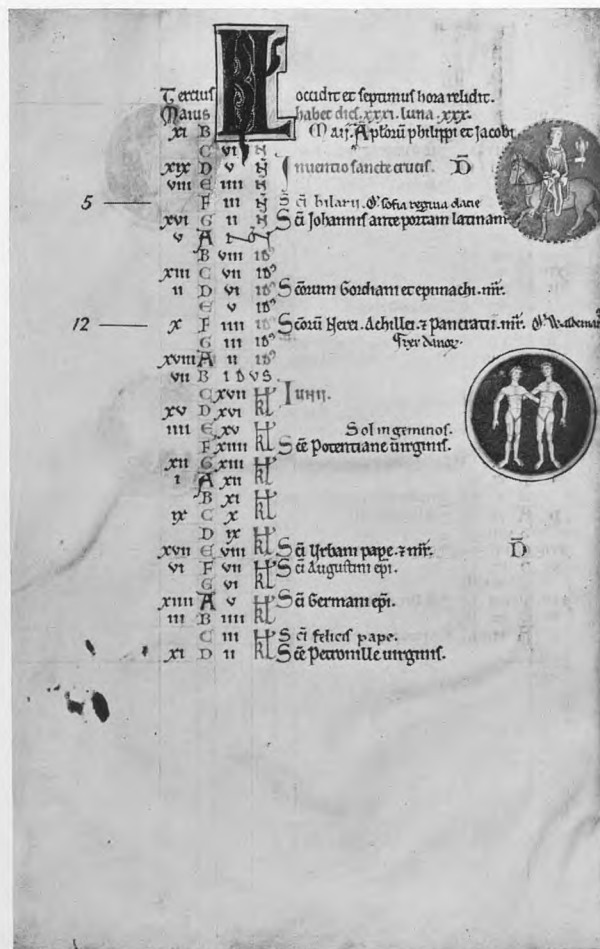 Tercius KL occidit et septimus hora relidit.
Maius habet dies .xxxi. luna .xxx.
xi B Maij. Aplorū philippi et Jacobi
C vi N
xix D v N Inventio sancte crucis. D
viii E iiii N
5 F iii N Sci hilarii. O sofia regina dacie
xvi G ii N Sci Johannis ante portam latinam
v A Non
B viii id
xiii C vii id
ii D vi id Scorum Gordiani et epimachi . mr.
E v id
12 x F iiii id Scorū Nerei . Achillei . ⁊ Pancratii . mr. O Waldemar
G iii id rex danor
xviii A ii id
vii B IDVS.
C xvii kl Iunij.
xv D xvi kl
iiii E xv kl Sol in geminos.
F xiiii kl Sce Potentiane virginis.
xii G xiii kl
i A xii kl
B xi kl
ix C x kl
D ix kl
xvii E viii kl Sci Urbani pape . ⁊ mr. D
vi F vii kl Sci Augustini epi.
G vi kl
xiiii A v kl Sci Germani epi.
iii B iiii kl
C iii kl Sci felicis pape.
xi D ii kl Sce Petronille virginis.